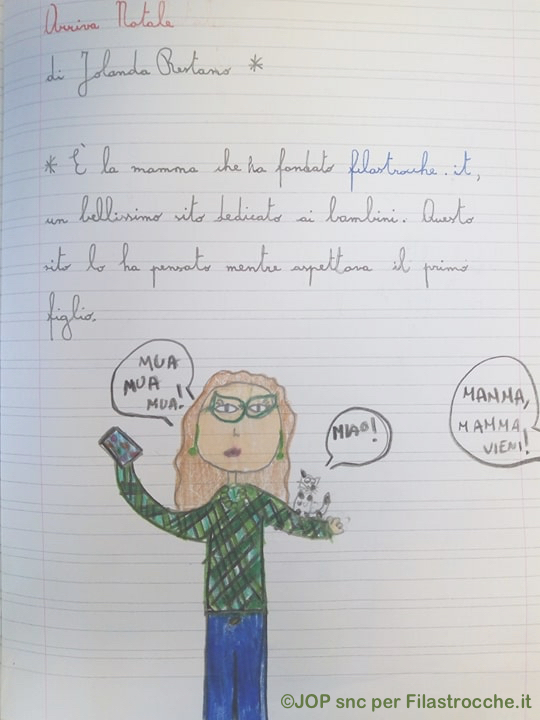 Arriva Natale
di Jolanda Restano *
* È la mamma che ha fondato filastrocche.it,
un bellissimo sito dedicato ai bambini. Questo
sito lo ha pensato mentre aspettava il primo
figlio.
MUA
MUA
MUA!
MIAO!
MAMMA,
MAMMA
VIENI!
©JOP snc per Filastrocche.it